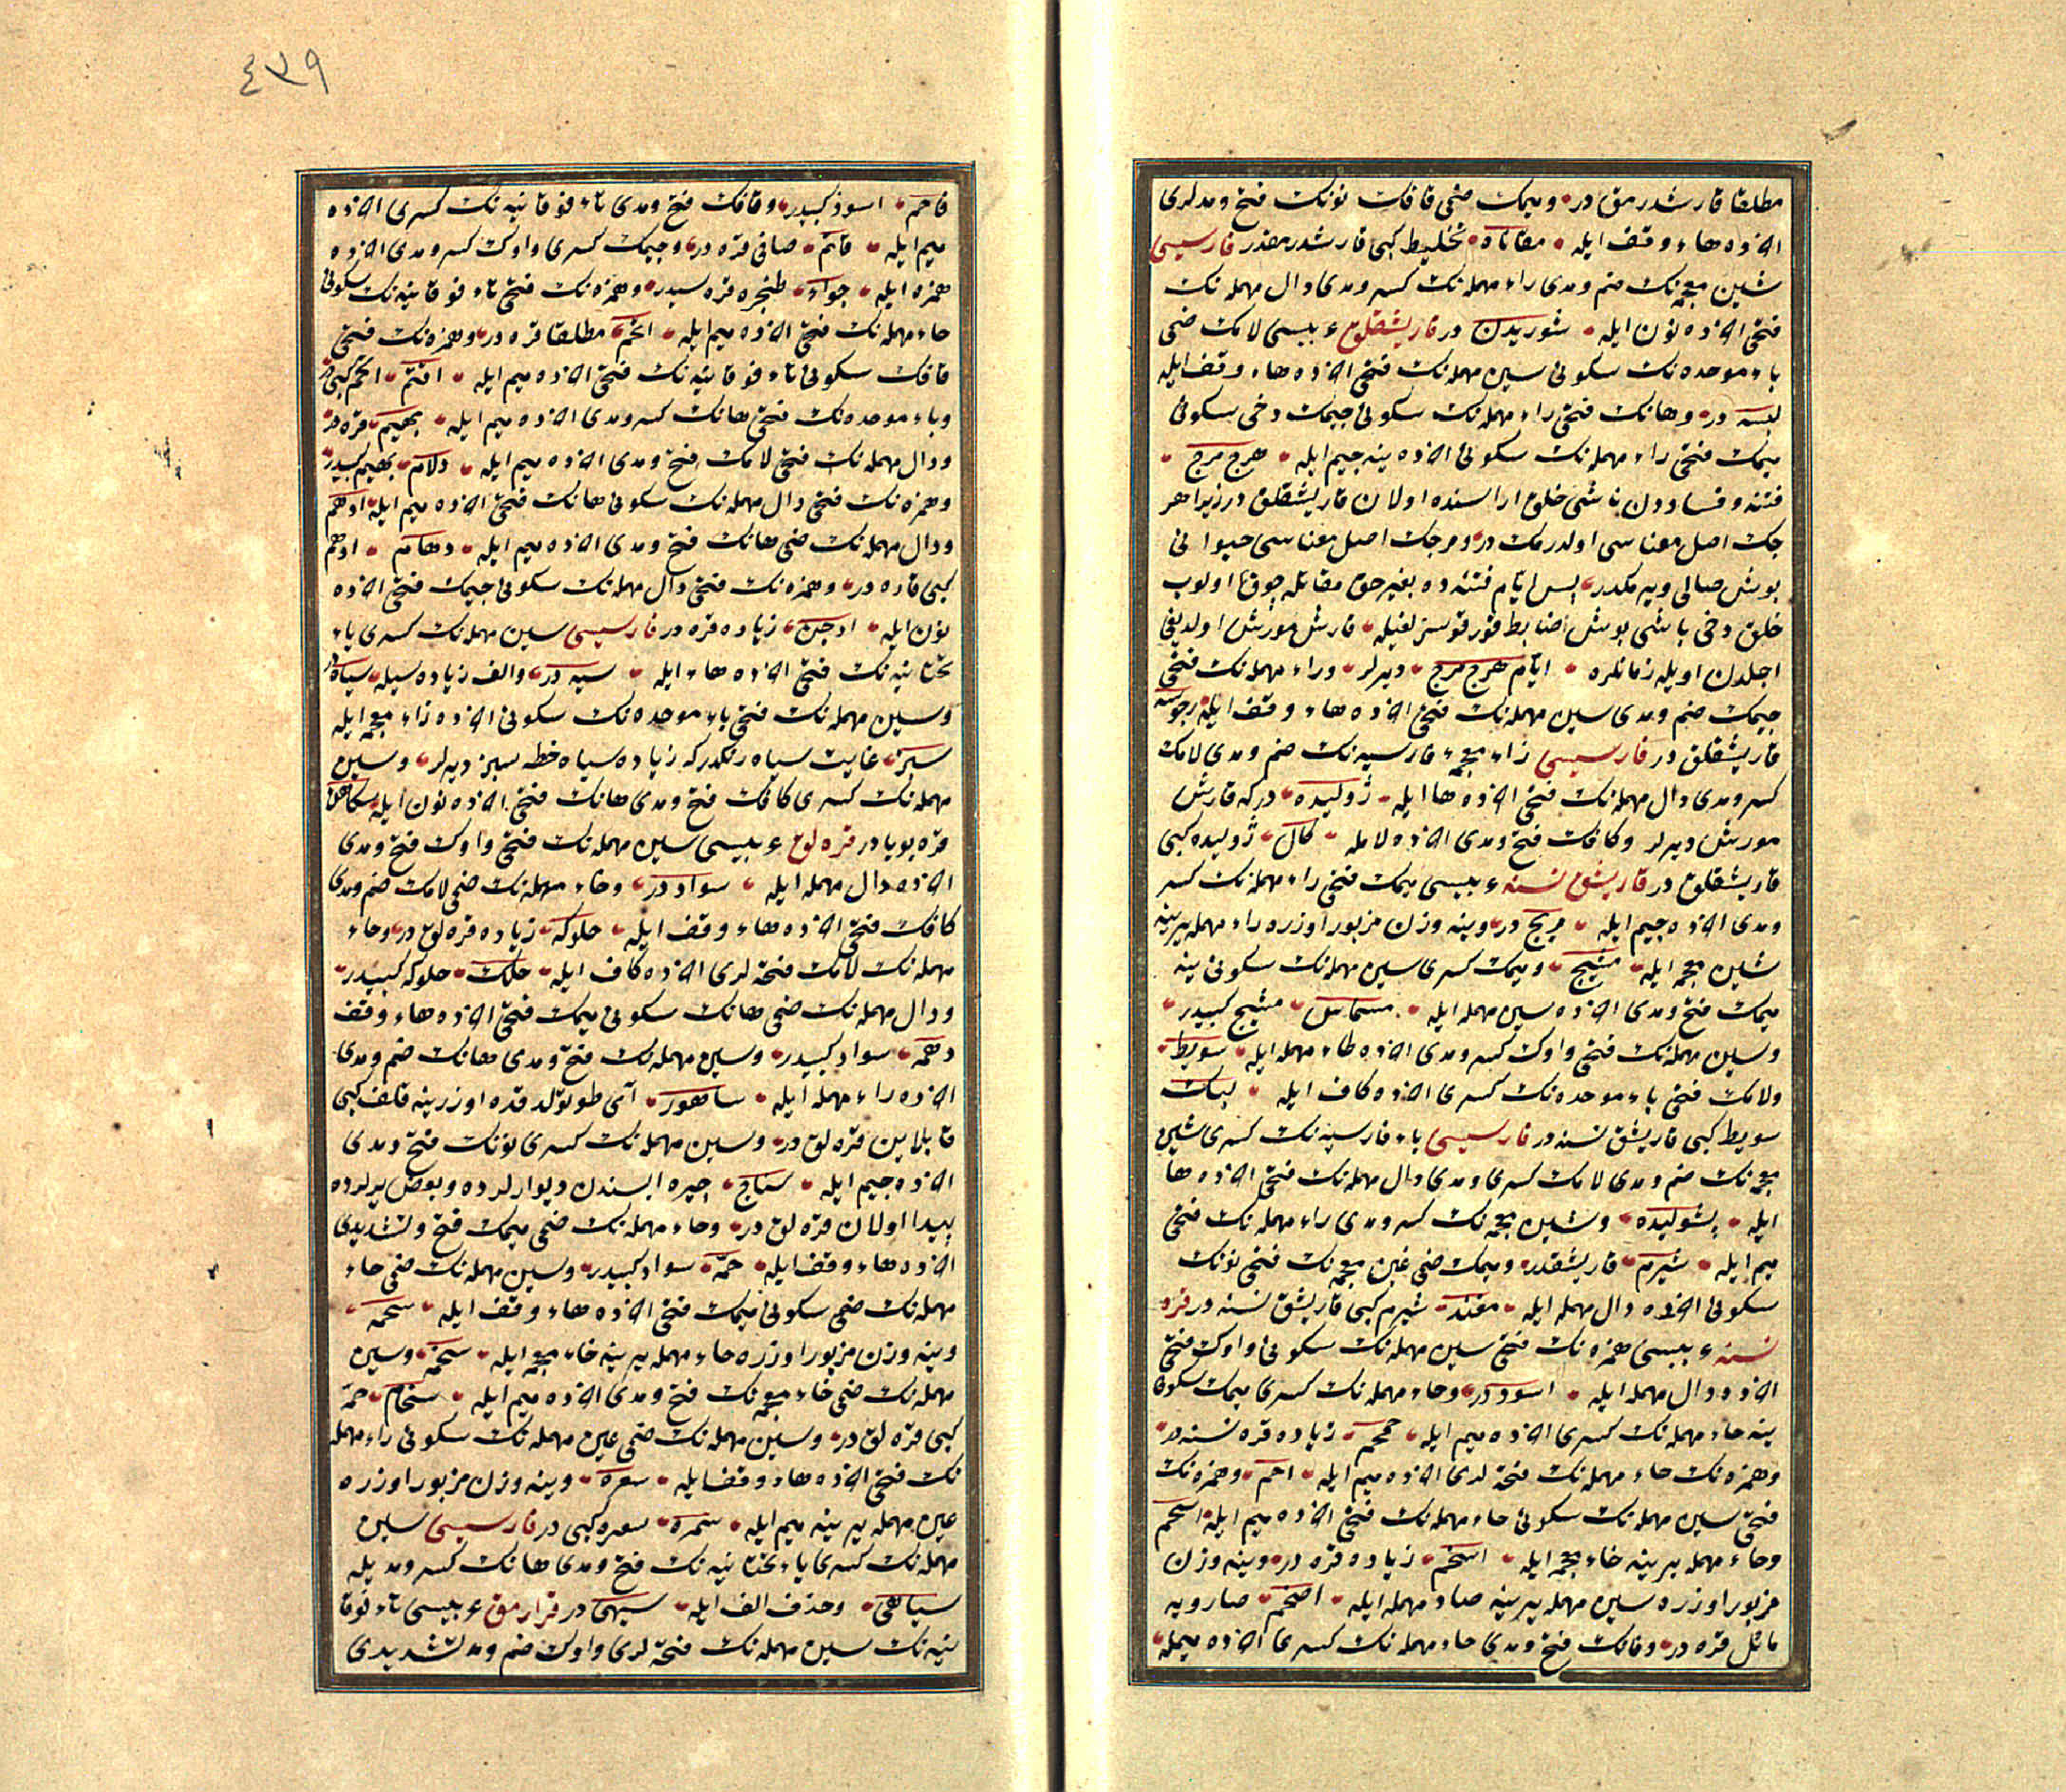 مطلقا قارشدرمق در وميمك ضمى قافك نونك فتح ومدلرى
اخرده هاء وقف ايله مقاناة تخليط كبى قارشدرمقدر فارسيسى
شين معجمه نك ضم ومدى راء مهمله نك كسر ومدى دال مهمله نك
فتحى اخرده نون ايله شوريدن در قاريشقلق عربيسى لامك ضمى
باء موحده نك سكونى سين مهمله نك فتحى اخرده هاء وقف ايله
لبسه در وهانك فتحى راء مهمله نك سكونى جيمك دخى سكونى
ميمك فتحى راء مهمله نك سكونى اخرده ينه جيم ايله هرج مرج
فتنه و فساددن ناشى خلق اراسنده اولان قاريشقلق در زيرا هر
جك اصل معناسى اولدرمك در ومرجك اصل معناسى حيوانى
بوش صالى ويرمكدر پس ايام فتنه ده بغير حق مقاتله چوق اولوب
خلق دخى باشى بوش اضابط قورقوسز لغيله قارش مورش اولديغى
اجلدن اويله زمانلره ايام هرج مرج ديرلر وراء مهمله نك فتحى
جيمك ضم ومدى سين مهمله نك فتحى اخرده هاء وقف ايله رجوسه
قاريشقلق در فارسيسى زاء معجمه فارسيه نك ضم ومدى لامك
كسر ومدى دال مهمله نك فتحى اخرده ها ايله ژوليده در كه قارش
مورش ديرلر وكافك فتح ومدى اخرده لام ايله كال ژوليده كبى
قاريشقلق در قاريشق نسنه عربيسى ميمك فتحى راء مهمله نك كسر
ومدى اخرده جيم ايله مريج در وينه وزن مزبور اوزره راء مهمله يرينه
شين معجمه ايله مشيج وميمك كسرى سين مهمله نك سكونى ينه
ميمك فتح ومدى اخرده سين مهمله ايله مسماس مشيج كبيدر
وسين مهمله نك فتحى واوك كسر ومدى اخرده طاء مهمله ايله سويط
ولامك فتحى باء موحده نك كسرى اخرده كاف ايله لبك
سويط كبى قاريشق نسنه در فارسيسى باء فارسيه نك كسرى شين
معجمه نك ضم ومدى لامك كسرى ومدى دال مهمله نك فتحى اخرده ها
ايله پشوليده وشين معجمه نك كسر ومدى راء مهمله نك فتحى
ميم ايله شيرم قاريشقدر وميمك ضمى غين معجمه نك فتحى نونك
سكونى اخرده دال مهمله ايله مغند شيرم كبى قاريشق نسنه در قره
نسنه عربيسى همزه نك فتحى سين مهمله نك سكونى واوك فتحى
اخرده دال مهمله ايله اسود در وحاء مهمله نك كسرى ميمك سكونى
ينه حاء مهمله نك كسرى اخرده ميم ايله حمحم زياده قره نسنه در
وهمزه نك حاء مهمله نك فتحه لرى اخرده ميم ايله احم وهمزه نك
فتحى سين مهمله نك سكونى حاء مهمله نك فتحى اخرده ميم ايله اسحم
وحاء مهمله يرينه خاء معجمه ايله اسخم زياده قره در وينه وزن
مزبور اوزره سين مهمله يرينه صاد مهمله ايله اصخم صارويه
مائل قره در وفانك فتح ومدى حاء مهمله نك كسرى اخرده ميمله
فاحم اسود كبيدر وقافك فتح ومدى تاء فوقانيه نك كسرى اخرده
ميم ايله قاتم صافى قره در وجيمك كسرى واوك كسر ومدى اخرده
همزه ايله جواء طنجره قره سيدر وهمزه نك فتحى تاء فوقانيه نك سكونى
حاء مهمله نك فتحى اخرده ميم ايله اتحم مطلقا قره در وهمزه نك فتحى
قافك سكونى تاء فوقانيه نك فتحى اخرده ميم ايله اقتم اتحم كبى در
وباء موحده نك فتحى هانك كسر ومدى اخرده ميم ايله بهيم قره در
ودال مهمله نك فتحى لامك فتح ومدى اخرده ميم ايله دلام بهيم كبيدر
وهمزه نك فتحى دال مهمله نك سكونى هانك فتحى اخرده ميم ايله ادهم
ودال مهمله نك ضمى هانك فتح ومدى اخرده ميم ايله دهام ادهم
كبى قاره در وهمزه نك فتحى دال مهمله نك سكونى جيمك فتحى اخرده
نون ايله ادجن زياده قره در فارسيسى سين مهمله نك كسرى ياء
تحتانيه نك فتحى اخرده هاء ايله سيه در والف زياده سيله سياه در
وسين مهمله نك فتحى باء موحده نك سكونى اخرده زاء معجمه ايله
سبز غايت سياه رنكدر كه زياده سياه خطه سبز ديرلر وسين
مهمله نك كسرى كافك فتح ومدى هانك فتحى اخرده نون ايله سكاهن
قره بويا در قره لق عربيسى سين مهمله نك فتحى واوك فتح ومدى
اخرده دال مهمله ايله سواد در وحاء مهمله نك ضمى لامك ضم ومدى
كافك فتحى اخرده هاء وقف ايله حلوكه زياده قره لق در وحاء
مهمله نك لامك فتحه لرى اخرده كاف ايله حلك حلوكه كبيدر
ودال مهمله نك ضمى هانك سكونى ميمك فتحى اخرده هاء وقف
دهمه سواد كبيدر وسين مهمله نك فتح ومدى هانك ضم ومدى
اخرده راء مهمله ايله ساهور آى طوتولدقده اوزرينه قلف كبى
قابلاين قره لق در وسين مهمله نك كسرى نونك فتح ومدى
اخرده جيم ايله سناج چيره ايسندن ديوارلرده وبعض يرلرده
پيدا اولان قره لق در وحاء مهمله نك ضمى ميمك فتح وتشديدى
اخرده هاء وقف ايله حمه سواد كبيدر وسين مهمله نك ضمى حاء
مهمله نك ضمى سكونى ميمك فتحى اخرده هاء وقف ايله سحمه
وينه وزن مزبور اوزره حاء مهمله يرينه خاء معجمه ايله سخمه وسين
مهمله نك ضمى خاء معجمه نك فتح ومدى اخرده ميم ايله سخام حمه
كبى قره لق در وسين مهمله نك ضمى عين مهمله نك سكونى راء مهمله
نك فتحى اخرده هاء وقف ايله سعره وينه وزن مزبور اوزره
عين مهمله يرينه ميم ايله سمره سعره كبى در فارسيسى سين
مهمله نك كسرى ياء تحتانيه نك فتح ومدى هانك كسر ومديله
سياهى وحذف الف ايله سيهى در قرارمق عربيسى تاء فوقا
نيه نك سين مهمله نك فتحه لرى واوك ضم ومد تشديدى
٤٣٩